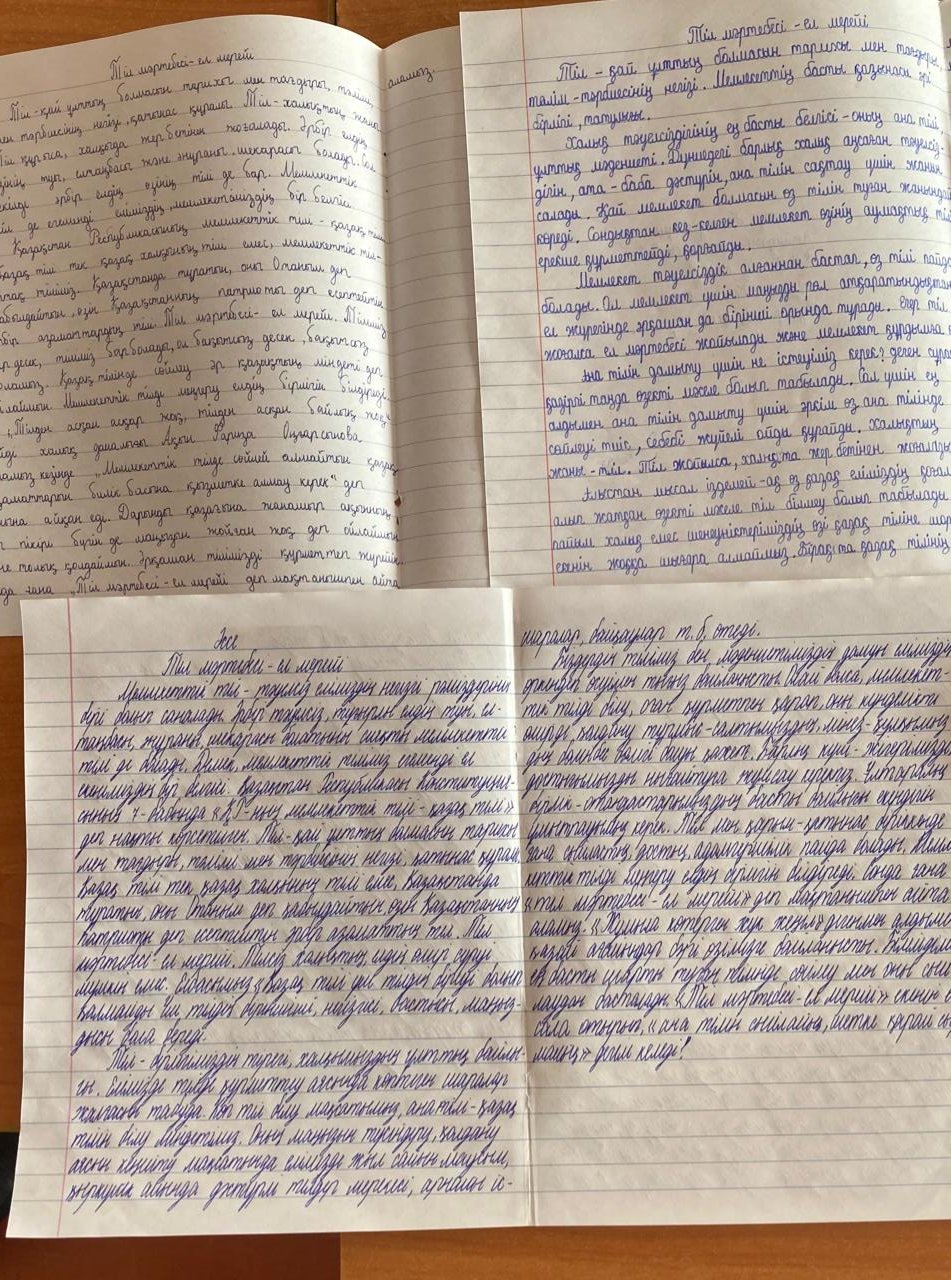 Тіл мәртебесі - ел мерейі
Тіл - қай ұлттың болмасын тарихы мен тағдыры, тәлімі
мен тәрбиесінің негізі, қатынас құралы. Тіл - халықтың жаны.
Тіл құрыса, халықта жер бетінен жоғалады. Әрбір елдің
өзінің туы, елтаңбасы және әнұраны, шекарасы болады. Сол
секілді әрбір елдің өзінің тілі де бар. Мемлекеттік
тіл де егеменді еліміздің, мемлекетіміздің бір белгісі.
Қазақстан Республикасының мемлекеттік тілі - қазақ тілі.
Қазақ тілі тек қазақ халқының тілі емес, мемлекеттік тіл -
ортақ тіліміз. Қазақстанда тұратын, оны Отаным деп
қабылдайтын, өзін Қазақстанның патриоты деп есептейтін
әрбір азаматтардың тілі. Тіл мәртебесі - ел мерейі. Тіліміз
бар десек, тіліміз бар болады, ол бақытсыз десек, бақытсыз
боламыз. Қазақ тілінде сөйлеу әр қазақтың міндеті деп
ойлаймын. Мемлекеттік тілді меңгеру елдің бірлігін білдіреді.
„Тілден асқан асқар жоқ, тілден асқан байлық жоқ"
дейді халық даналығы. Ақын Фариза Оңғарсынова
заманы кезінде „Мемлекеттік тілде сөйлей алмайтын қазақ
азаматтарын билік басына қызметке алмау керек" деп
айқан еді. Дарынды қазағына жанашыр ақынның
пікірі бүгін де маңызын жойған жоқ деп ойлаймын
және толық қолдаймын. Әрқашан тілімізді құрметтеп жүрейік.
Сонда ғана „Тіл мәртебесі - ел мерейі" деп мақтанышпен айта
аламыз.
Тіл мәртебесі - ел мерейі
Тіл - қай ұлттың болмасын тарихы мен тағдыры,
тәлім-тәрбиесінің негізі. Мемлекеттің басты қазынасы әрі
бірлігі, татулығы.
Халық тәуелсіздігінің ең басты белгісі - оның ана тілі,
ұлттық мәдениеті. Дүниедегі барлық халық аңсаған тәуелсіз-
дігін, ата-баба дәстүрін, ана тілін сақтау үшін жанын
салады. Қай мемлекет болмасын өз тілін туған жанындай
көреді. Сондықтан кез-келген мемлекет өзінің аумақтық тілін
ерекше құрметтейді, қорғайды.
Мемлекет тәуелсіздік алғаннан бастап, өз тілі пайда
болады. Ол мемлекет үшін маңызды рөл атқаратындықтан
ел жүрегінде әрқашан да бірінші орында тұрады. Егер тіл
жоғалса ел мәртебесі жойылады және мемлекет құрдымға
Ана тілін дамыту үшін не істеуіміз керек? деген сұрақ
қазіргі таңда өзекті мәселе болып табылады. Сол үшін ең
алдымен ана тілін дамыту үшін әркім өз ана тілінде
сөйлеуі тиіс, себебі жүйелі ойды құрайды. Халықтың
жаны - тіл. Тіл жойылса, халықта жер бетінен жоғалады
Алыстан мысал іздемей-ақ өз қазақ еліміздің
алып жатқан өзекті мәселе тіл білмеу болып табылады
Қарапайым халық емес шенеуніктеріміздің өзі қазақ тіліне
екенін жоққа шығара алмаймыз. Бірақ та қазақ тілінің
Эссе
Тіл мәртебесі - ел мерейі
Мемлекеттік тіл - тәуелсіз еліміздің негізгі рәміздерінің
бірі болып саналады. Әрбір тәуелсіз, тұғырлы елдің туы, ел-
таңбасы, әнұраны, шекарасы болатыны сияқты мемлекеттік
тілі де болады. Демек, мемлекеттік тіліміз егеменді ел
екеніміздің бір белгісі. Қазақстан Республикасы Конституция-
сының 7-бабында «ҚР-ның мемлекеттік тілі - қазақ тілі»
деп нақты көрсетілген. Тіл - қай ұлттың болмасын тарихы
мен тағдыры, тәлімі мен тәрбиесінің негізі, қатынас құралы.
Қазақ тілі тек қазақ халқының тілі емес, Қазақстанда
тұратын, оны Отаным деп қабылдайтын, өзін Қазақстанның
патриоты деп есептейтін әрбір азаматтың тілі. Тіл
мәртебесі - ел мерейі. Тілсіз халықтың, елдің өмір сүруі
мүмкін емес. Елбасының «Қазақ тілі үш тілдің біреуі болып
қалмайды. Үш тілдің бірінші, негізгі, бастысы, маңыз-
дысы» баға береді.
Тіл - бірлігіміздің тірегі, халқымыздың ұлттық байлы-
ғы. Елімізде тілді құрметтеу аясында көптеген шаралар
жалғасын табуда. Көп тіл білу мақсатымыз, ана тілі - қазақ
тілін білу міндетіміз. Оның маңызын түсіндіру, қолдану
аясын кеңейту мақсатында елімізде жыл сайын маусым,
қыркүйек айында дәстүрлі тілдер мерекесі, арнайы іс-
шаралар, байқаулар т.б. өтеді.
Біздердің тіліміз бен мәдениетіміздің дамуы еліміздің
өркендеп өсуімен тығыз байланысты. Олай болса, мемлекет-
тік тілді білу, оған құрметпен қарап, оны күнделікті
өмірді, қоғамды тұрмыс-салтымыздың, мінез-құлқымыз-
дың болуы қажет. Барлық күш-жігерімізді
достығымызды нығайтуға жұмсау керекпіз. Ұлтаралық
бірлік - отандастарымыздың басты байлығы екендігін
ұмытпауымыз керек. Тіл мен қарым-қатынас біріккенде
ғана сыйластық, достық, адамгершілік пайда болады. Мемле-
кеттік тілді меңгеру елдің бірлігін білдіреді. Сонда ғана
«Тіл мәртебесі - ел мерейі» деп мақтанышпен айта
аламыз. «Жұмыла көтерген жүк жеңіл» дегенмен алдымыз-
дағы асқындар бұл өзімізге байланысты. Біліміздің
ең басты шарты туған тілінде сөйлеу мен оны сый-
лаудан басталады. «Тіл мәртебесі - ел мерейі» екенін еске
сала отырып, «ана тілін сыйлайық, шетке қарай
майық» дегім келеді!